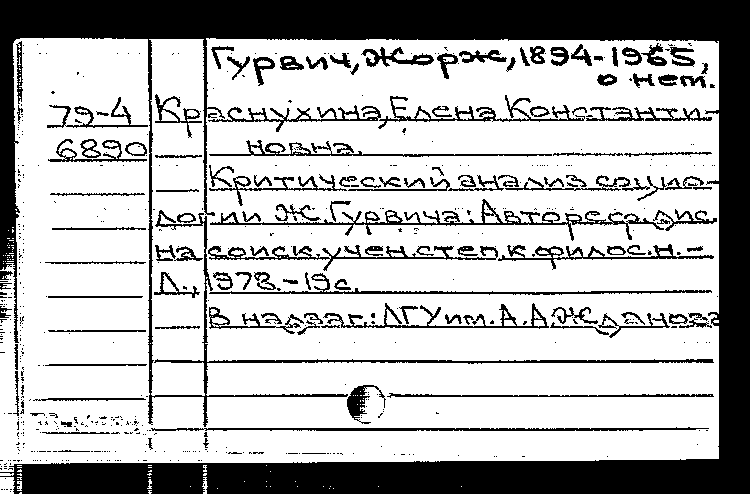 Гурвич, Жорж, 1894-1965,
о нем.
79-4 Краснухина, Елена Константи-
6890 новна.
Критический анализ социо-
логии Ж. Гурвича: Автореф. дис.
на соиск. учен. степ. к. филос. н. -
Л., 1978. - 19 с.
В надзаг.: ЛГУ им. А. А. Жданова